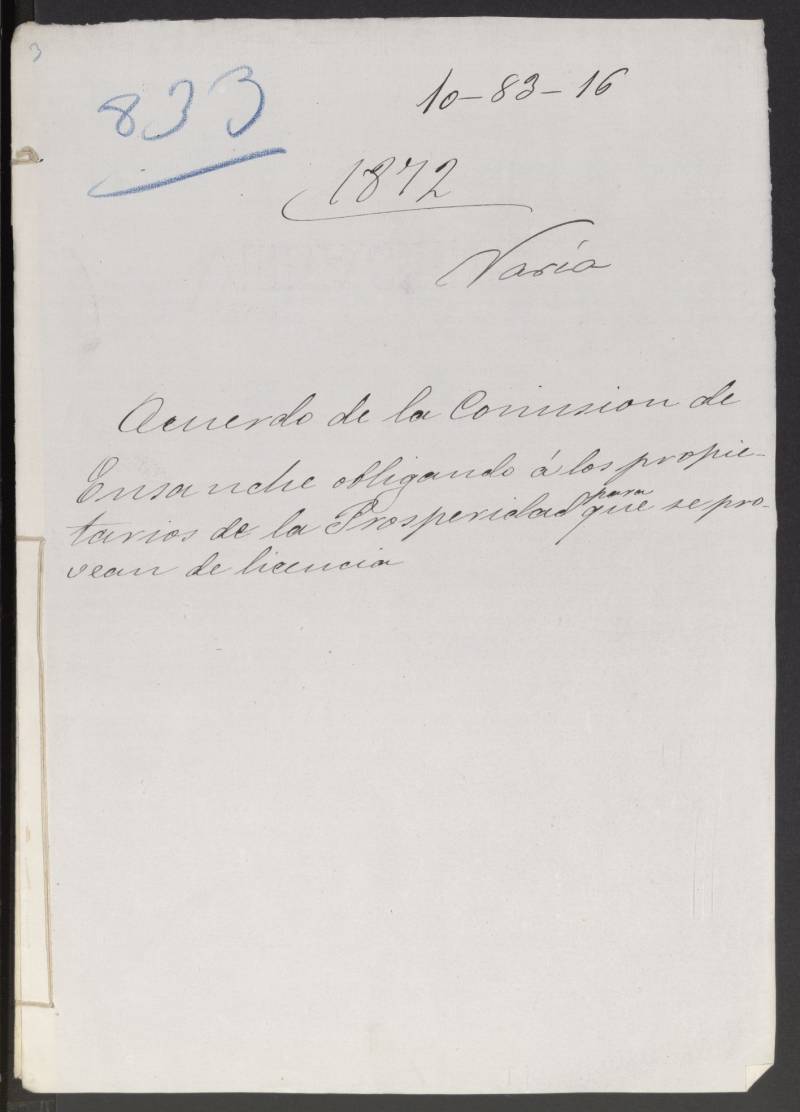 3
833
10-83-16
1872
Varia
Acuerdo de la Comision de
Ensanche obligando á los propie-
tarios de la Prosperidad para que se pro-
vean de licencia